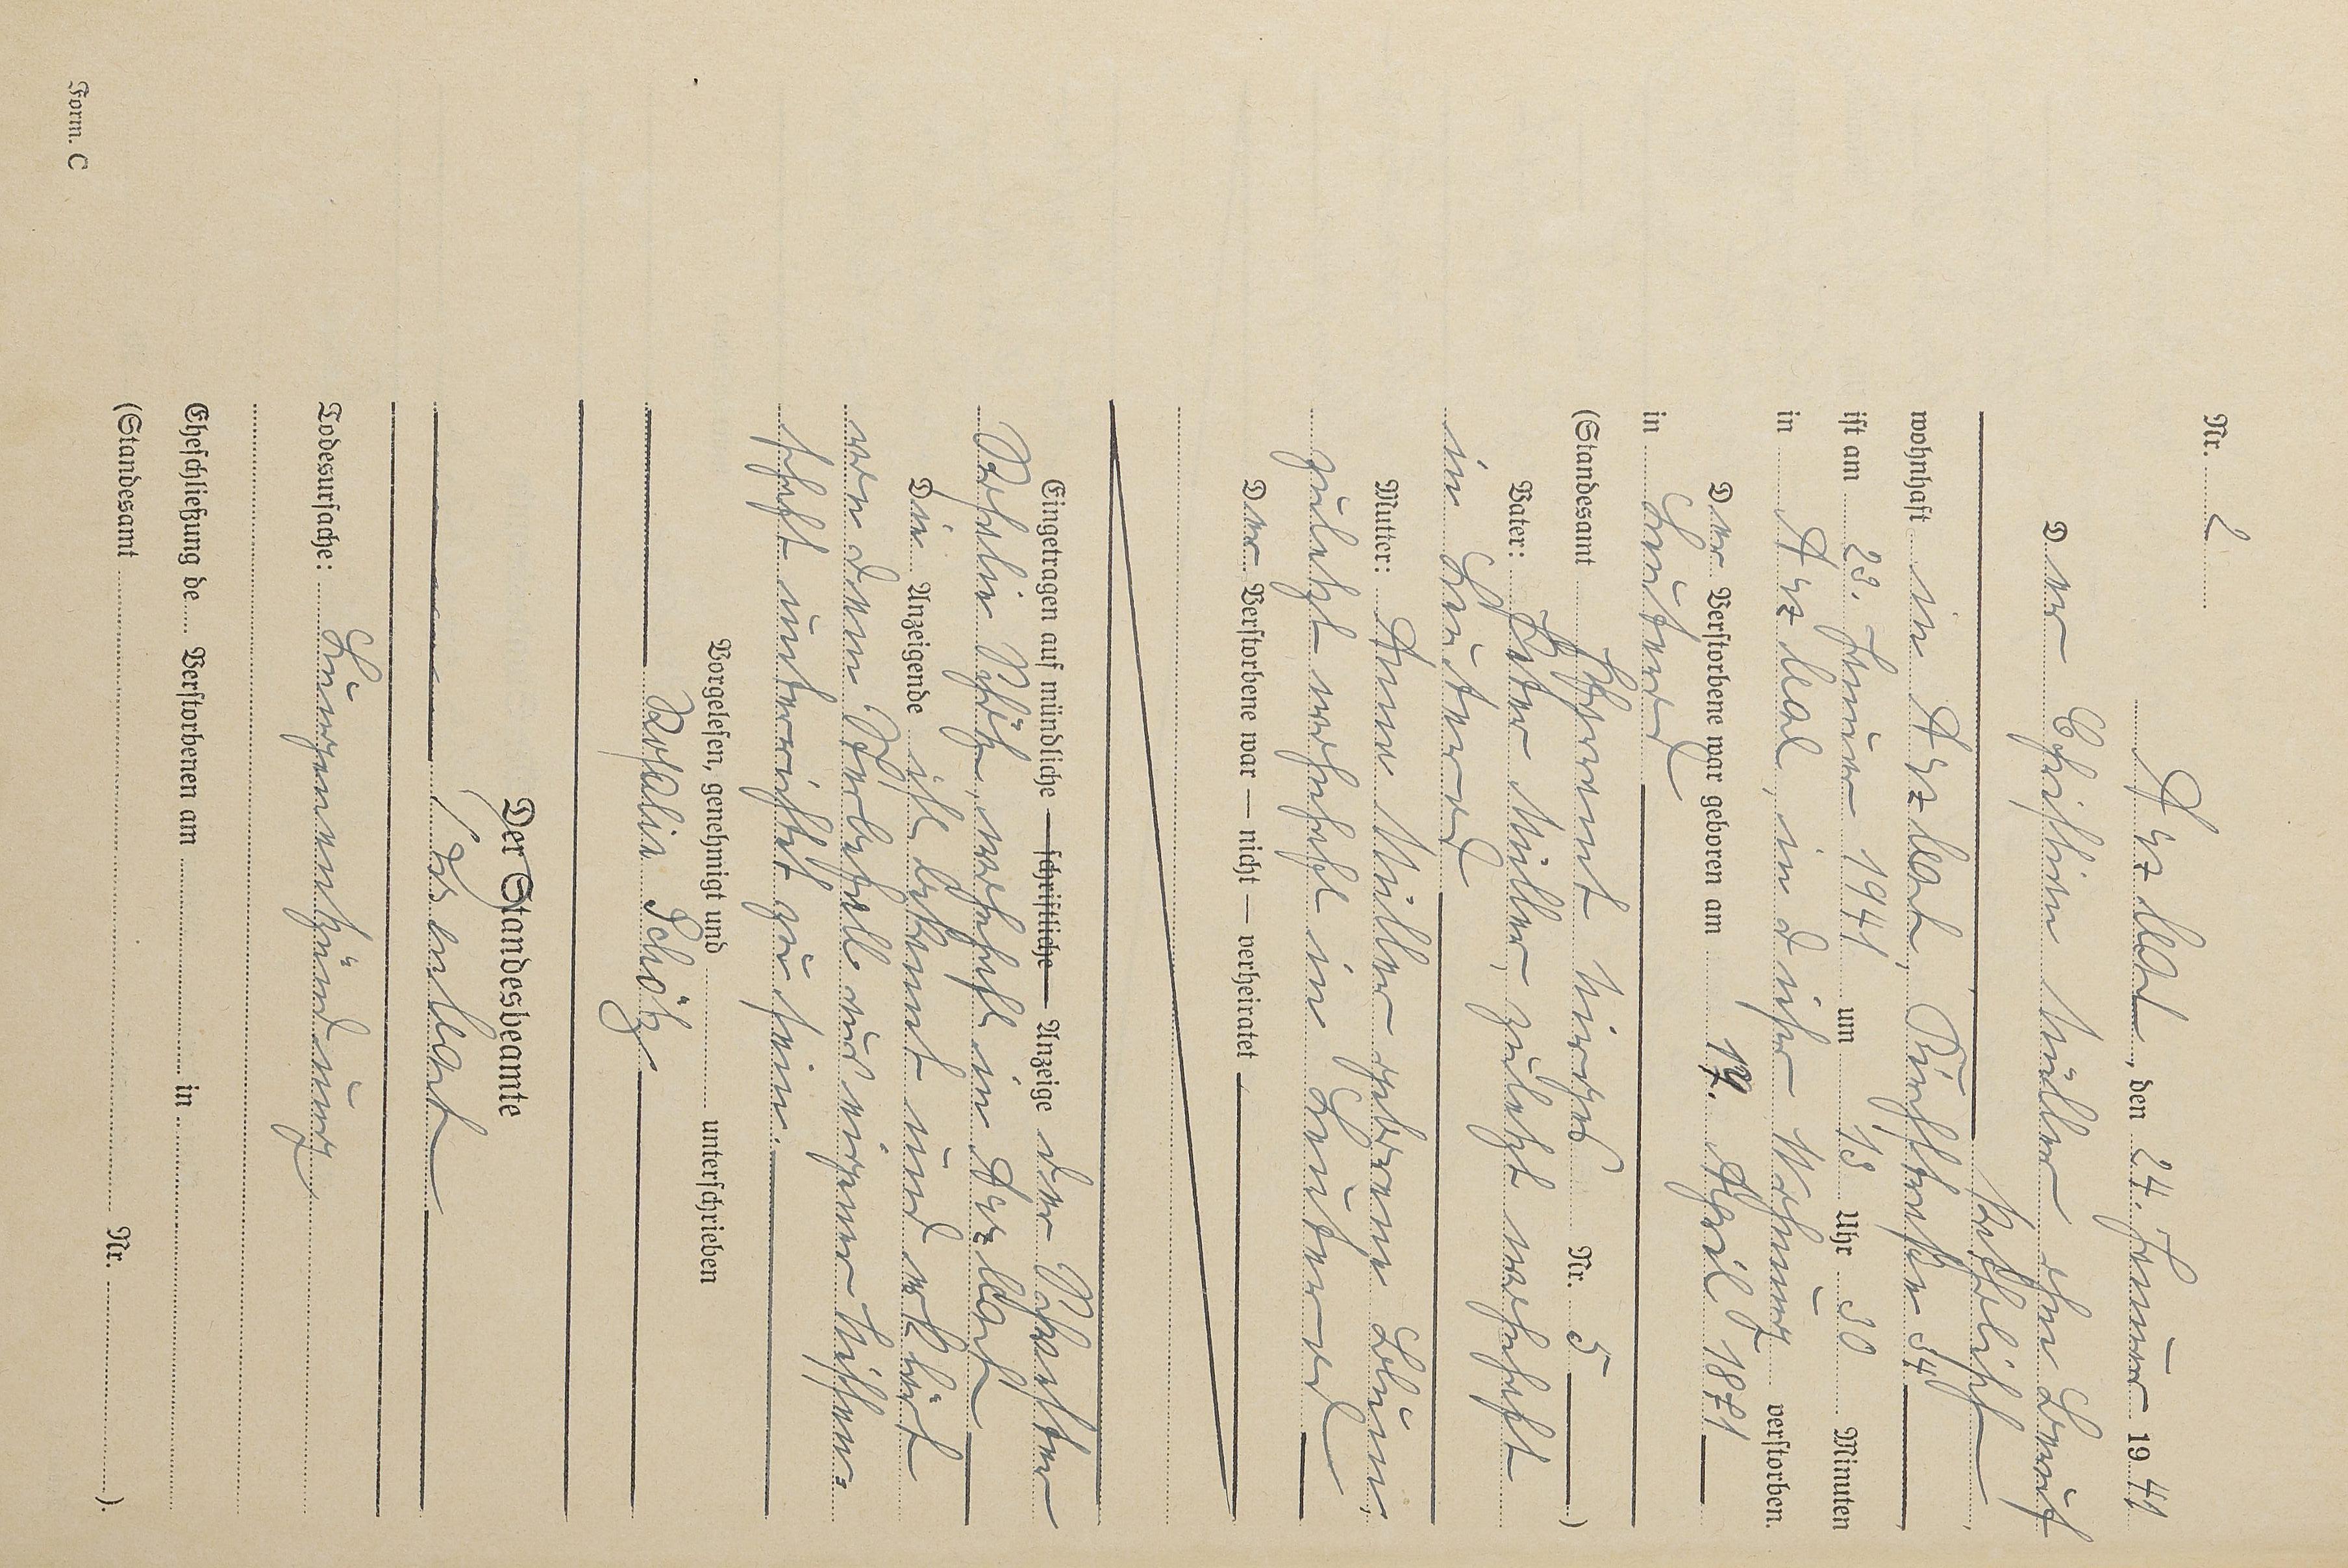 Nr. 2
Arzbach, den 24. Januar 1941
Der Christian Müller ohne Beruf
katholisch
wohnhaft in Arzbach, Bachstraße 34
ist am 23. Januar 1941 um 13 Uhr 30 Minuten
in Arzbach, in dieser Wohnung verstorben.
Der Verstorbene war geboren am 19. April 1871
in
(Standesamt Nr. 5)
Vater: Peter Müller, zuletzt wohnhaft
in
Mutter: Anna Müller geborene
zuletzt wohnhaft in
Der Verstorbene war — nicht — verheiratet
Eingetragen auf mündliche — schriftliche — Anzeige der
Rosalia Schötz, wohnhaft in Arzbach
Die Anzeigende ist bekannt und erklärt
von dem Sterbefall aus eigener Wissen-
schaft unterrichtet zu sein.
Vorgelesen, genehmigt und unterschrieben
Rosalia Schötz
Der Standesbeamte
Todesursache: Lungenentzündung
Eheschließung de Verstorbenen am in
(Standesamt Nr. ).
Form. C